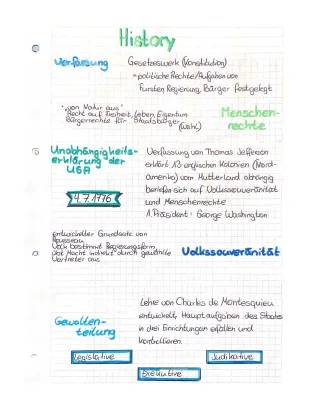 History
Verfassung
Gesetzeswerk (Konstitution)
→ politische Rechte/Aufgaben von
Fürsten, Regierung, Bürger festgelegt
"von Natur aus"
Recht auf Freiheit, Leben, Eigentum
Bürgerrechte für Staatsbürger
(Wahl)
Menschen-
rechte
Unabhängigkeits-
erklärung der
USA
4.7.1776
Verfassung von Thomas Jefferson
erklärt 13 englischen Kolonien (Nord-
amerika) vom Mutterland abhängig
beriefen sich auf Volkssouveränität
und Menschenrechte
1. Präsident: George Washington
entwickelter Grundsatz von
Rousseau
Volk bestimmt Regierungsform,
übt Macht indirekt durch gewählte
Vertreter aus
Volkssouveränität
Gewalten-
teilung
Lehre von Charles de Montesquieu
entwickelt, Hauptaufgaben des Staates
in drei Einrichtungen erfüllen und
kontrollieren
Legislative
Judikative
Exekutive